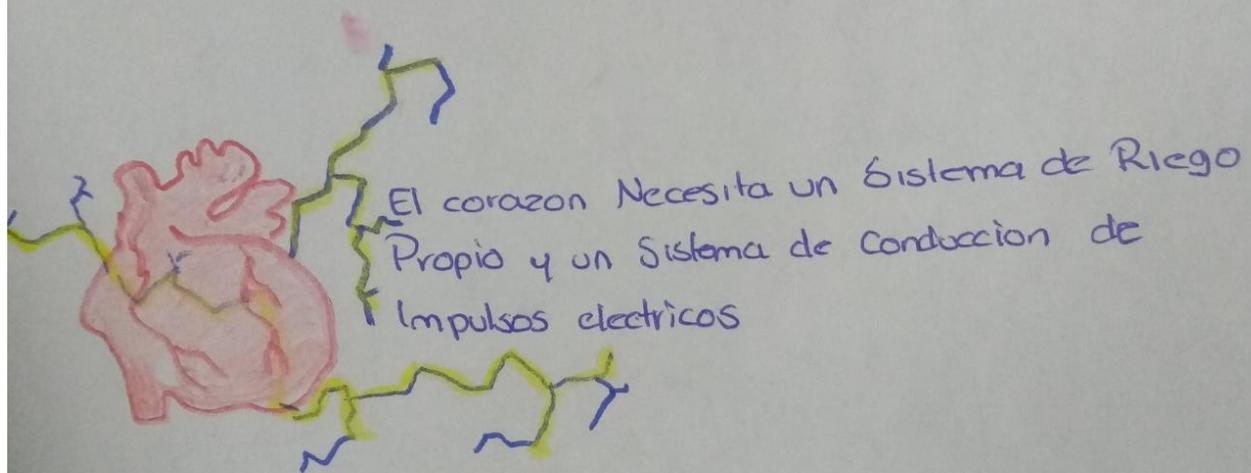 El corazon Necesita un Sistema de Riego
Propio y un Sistema de Conduccion de
Impulsos electricos